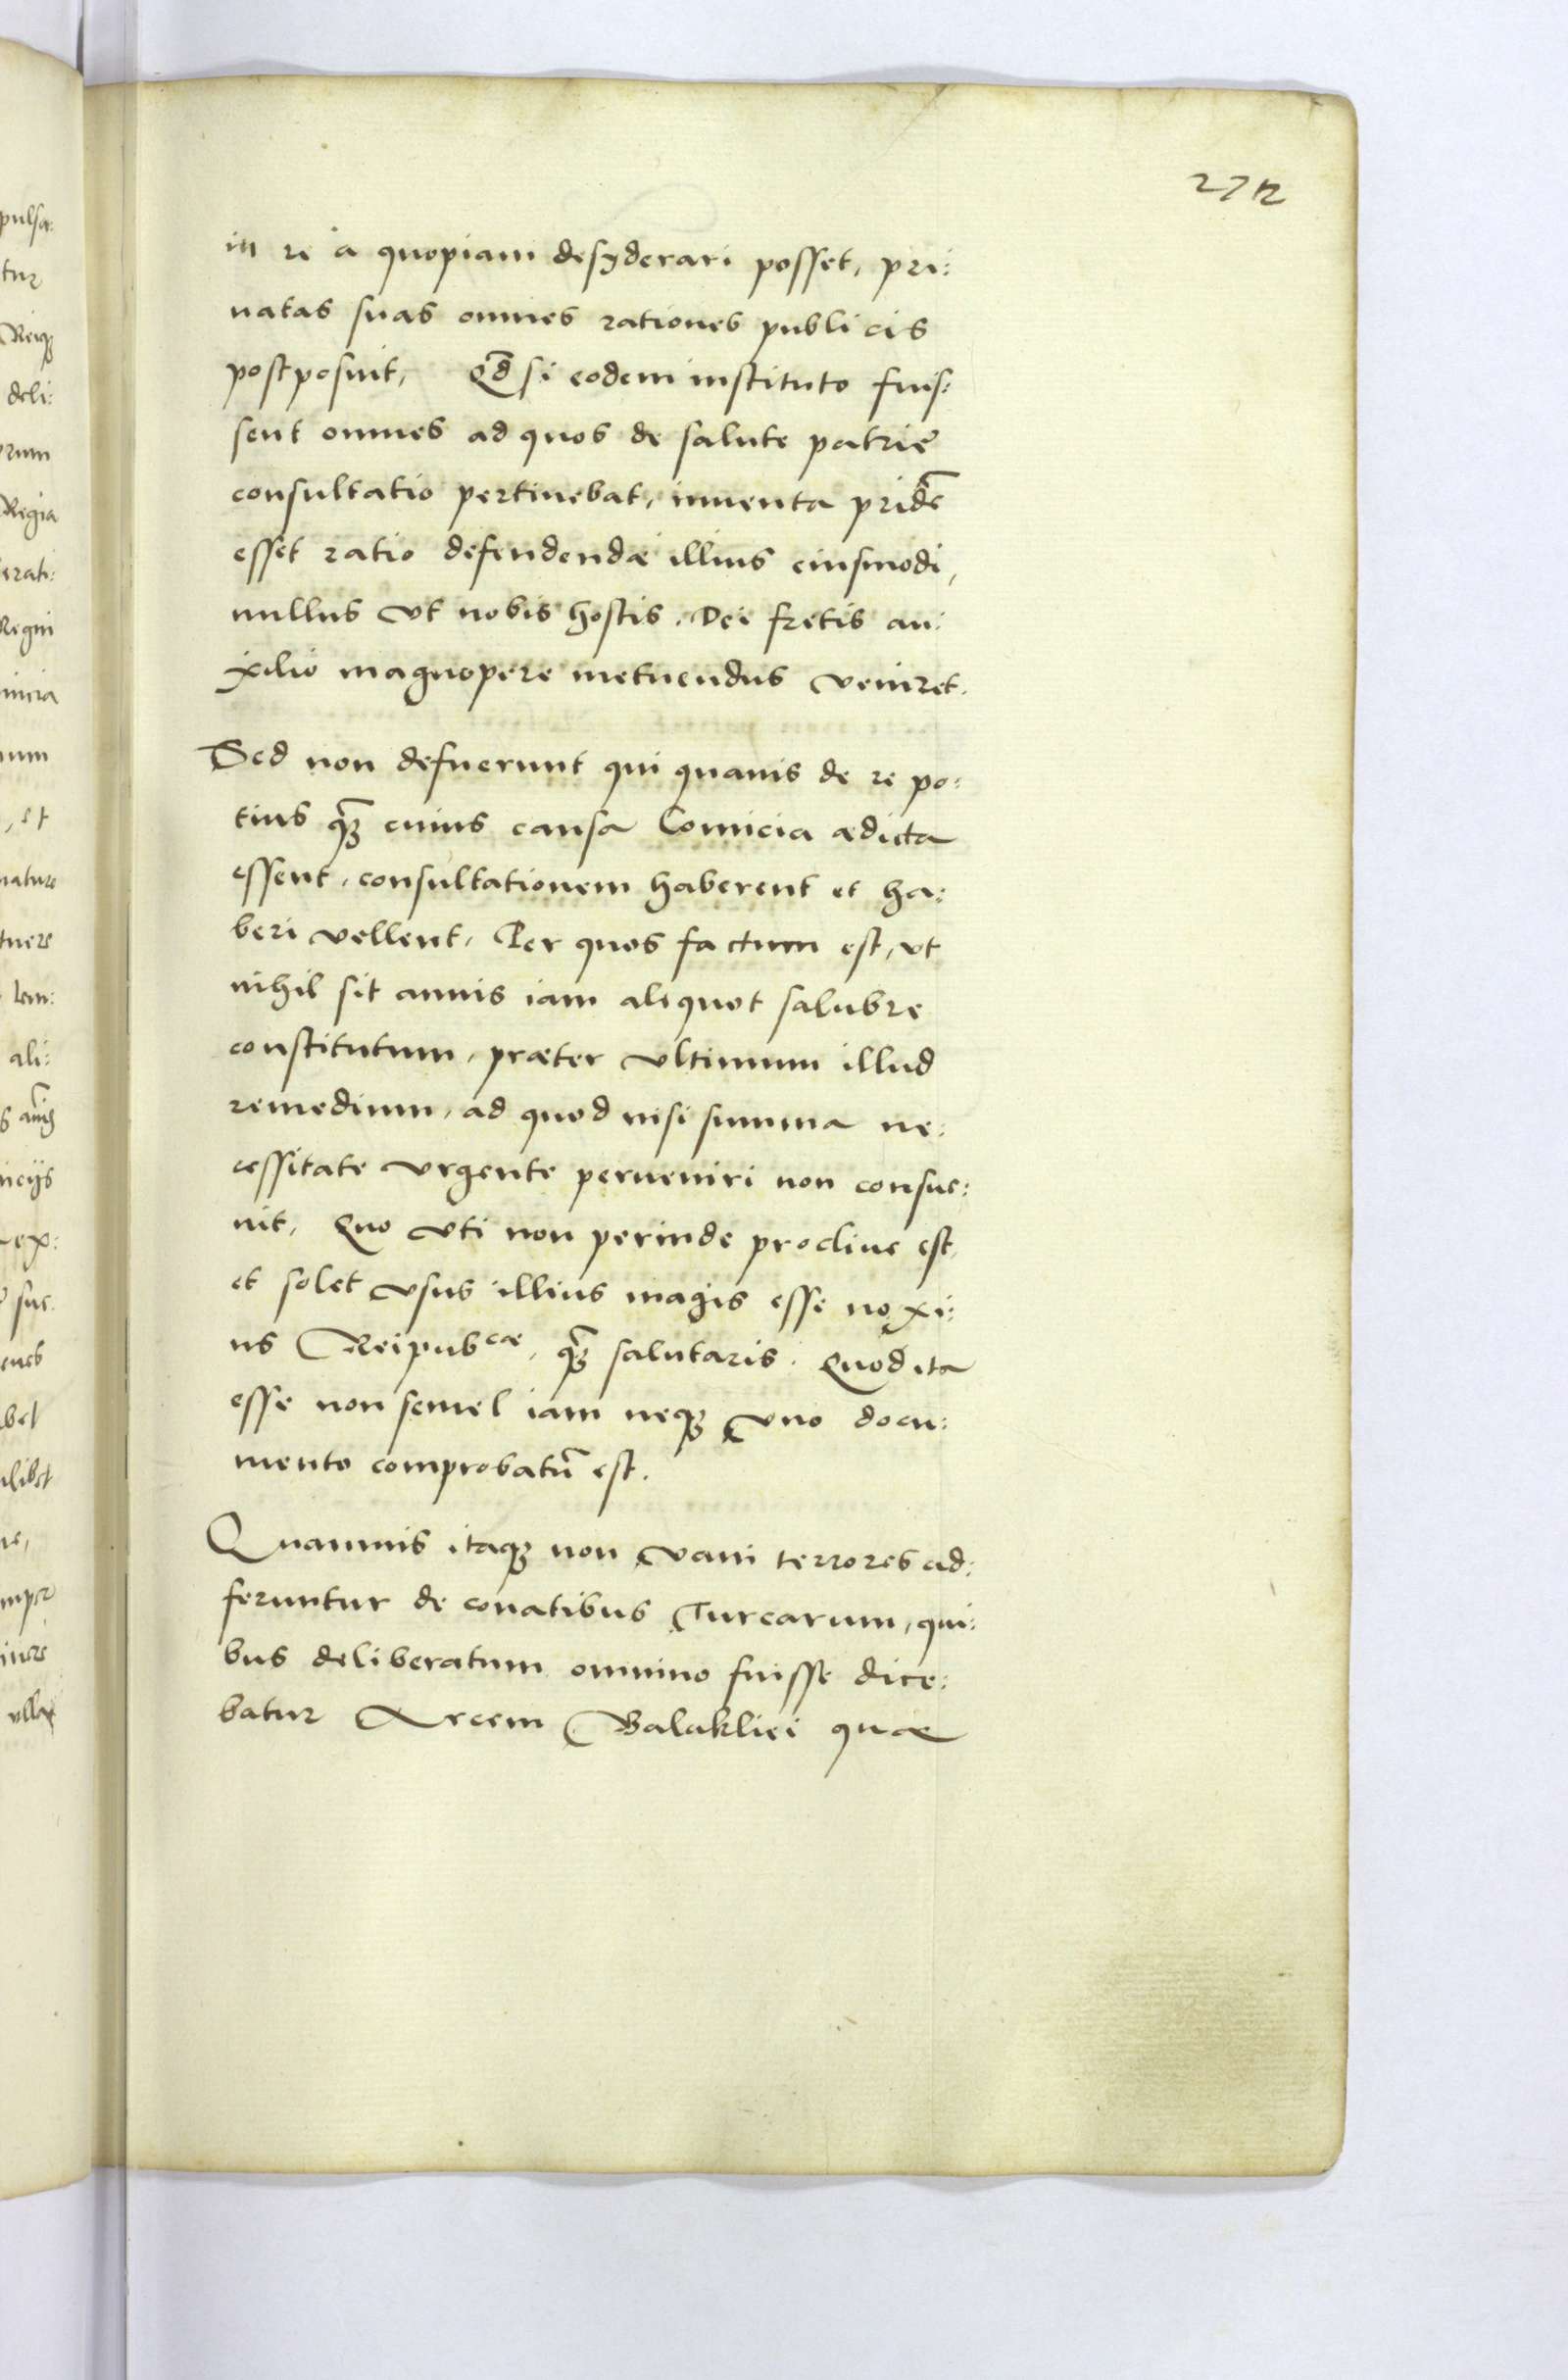 272
in re a quopiam desyderari posset, pri:
uatas suas omnes rationes publicis
postposuit, Qd̃ si eodem instituto fuis:
sent omnes ad quos de salute patrię
consultatio pertinebat, inuenta pridẽ
esset ratio defendendæ illius eiusmodi,
nullus vt nobis hostis, Dei fretis au:
xilio magnopere metuendus veniret.
Sed non defuerunt qui quauis de re po:
tius q̃ȝ cuius causa Comicia ædicta
essent, consultationem haberent et ha:
beri vellent, Per quos factum est, vt
nihil sit annis iam aliquot salubre
constitutum, præter vltimum illud
remedium, ad quod nisi summa ne:
cessitate vrgente perueniri non consue:
uit, Quo vti non perinde procliue est,
et solet vsus illius magis esse noxi:
us Reipubcæ, q̃ȝ salutaris. Quod ita
esse non semel iam neqȝ vno docu:
mento comprobatũ est.
Quamuis itaqȝ non vani terrores ad:
feruntur de conatibus Turcarum, qui:
bus deliberatum omnino fuisse dice:
batur Arcem Balakliei quæ
pulsa:
tur
Reiqȝ
deli:
rum
Regia
erati:
Regni
et
ali:
ex: